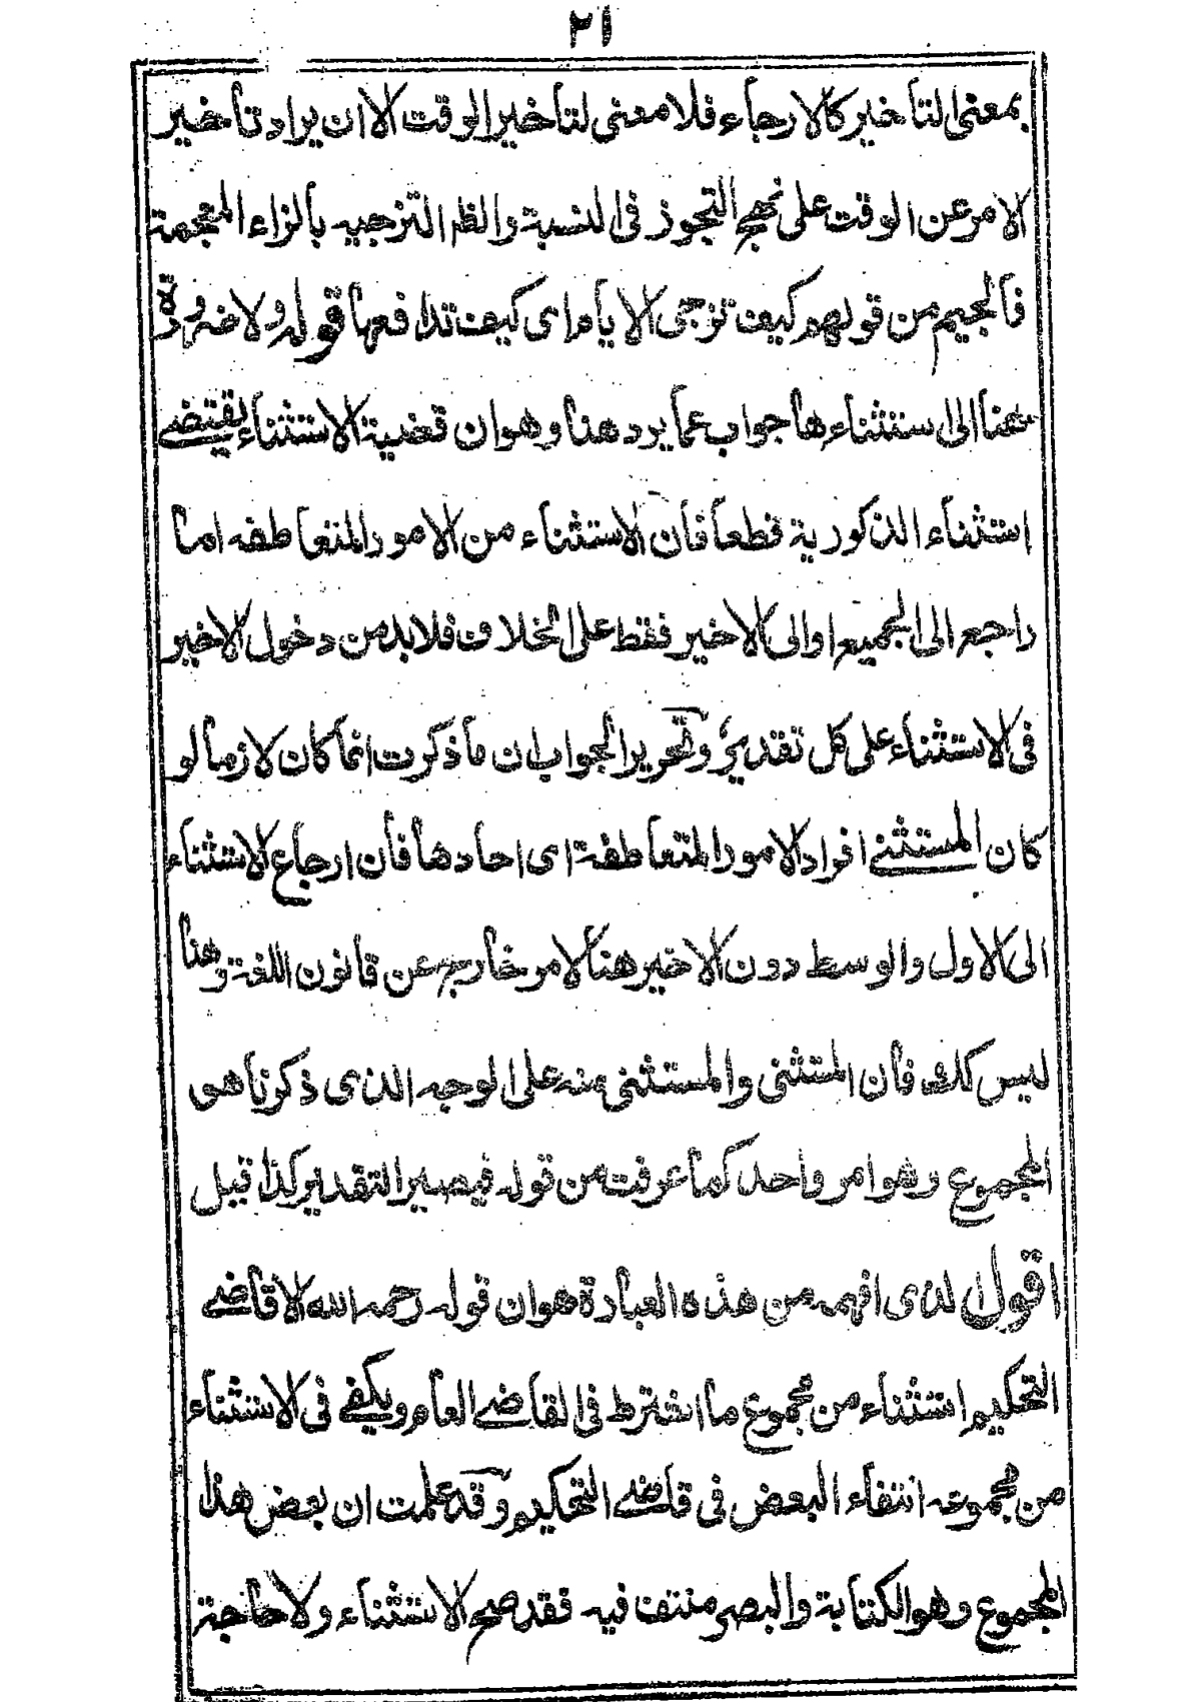 ٢١
بمعنى التأخير كالارجاء فلا معنى لتأخير الوقت الا ان يراد تأخير
الامر عن الوقت على نهج التجوز فى النسبة والظ التزجيه بالزاء المعجمة
فالجيم من قولهم كيف تزجى الايام اى كيف تدافعها قوله ولا ضرورة
هنا الى استثناءها جواب عما يرد هنا وهو ان قضية الاستثناء يقتضى
استثناء الذكورية قطعا فان الاستثناء من الامور المتعاطفه اما
راجع الى الجميع او الى الاخير فقط على الخلاف فلابد من دخول الاخير
فى الاستثناء على كل تقدير وتحرير الجواب ان ما ذكرت انما كان لازما لو
كان المستثنى افراد الامور المتعاطفة اى احادها فان ارجاع الاستثناء
الى الاول والوسط دون الاخير هنا لامر خارج عن قانون اللغة وهنا
ليس كك فان المستثنى والمستثنى منه على الوجه الذى ذكرنا هو
المجموع وهو امر واحد كما عرفت من قوله فيصير التقدير كذا قيل
اقول الذى افهمه من هذه العبارة هو ان قوله رحمه الله الا قاضى
التحكيم استثناء من مجموع ما اشترط فى القاضى العام ويكفى فى الاستثناء
من مجموعه انتفاء البعض فى قاضى التحكيم وقد علمت ان بعض هذا
المجموع وهو الكتابة والبصر منتف فيه فقد صح الاستثناء ولا حاجة